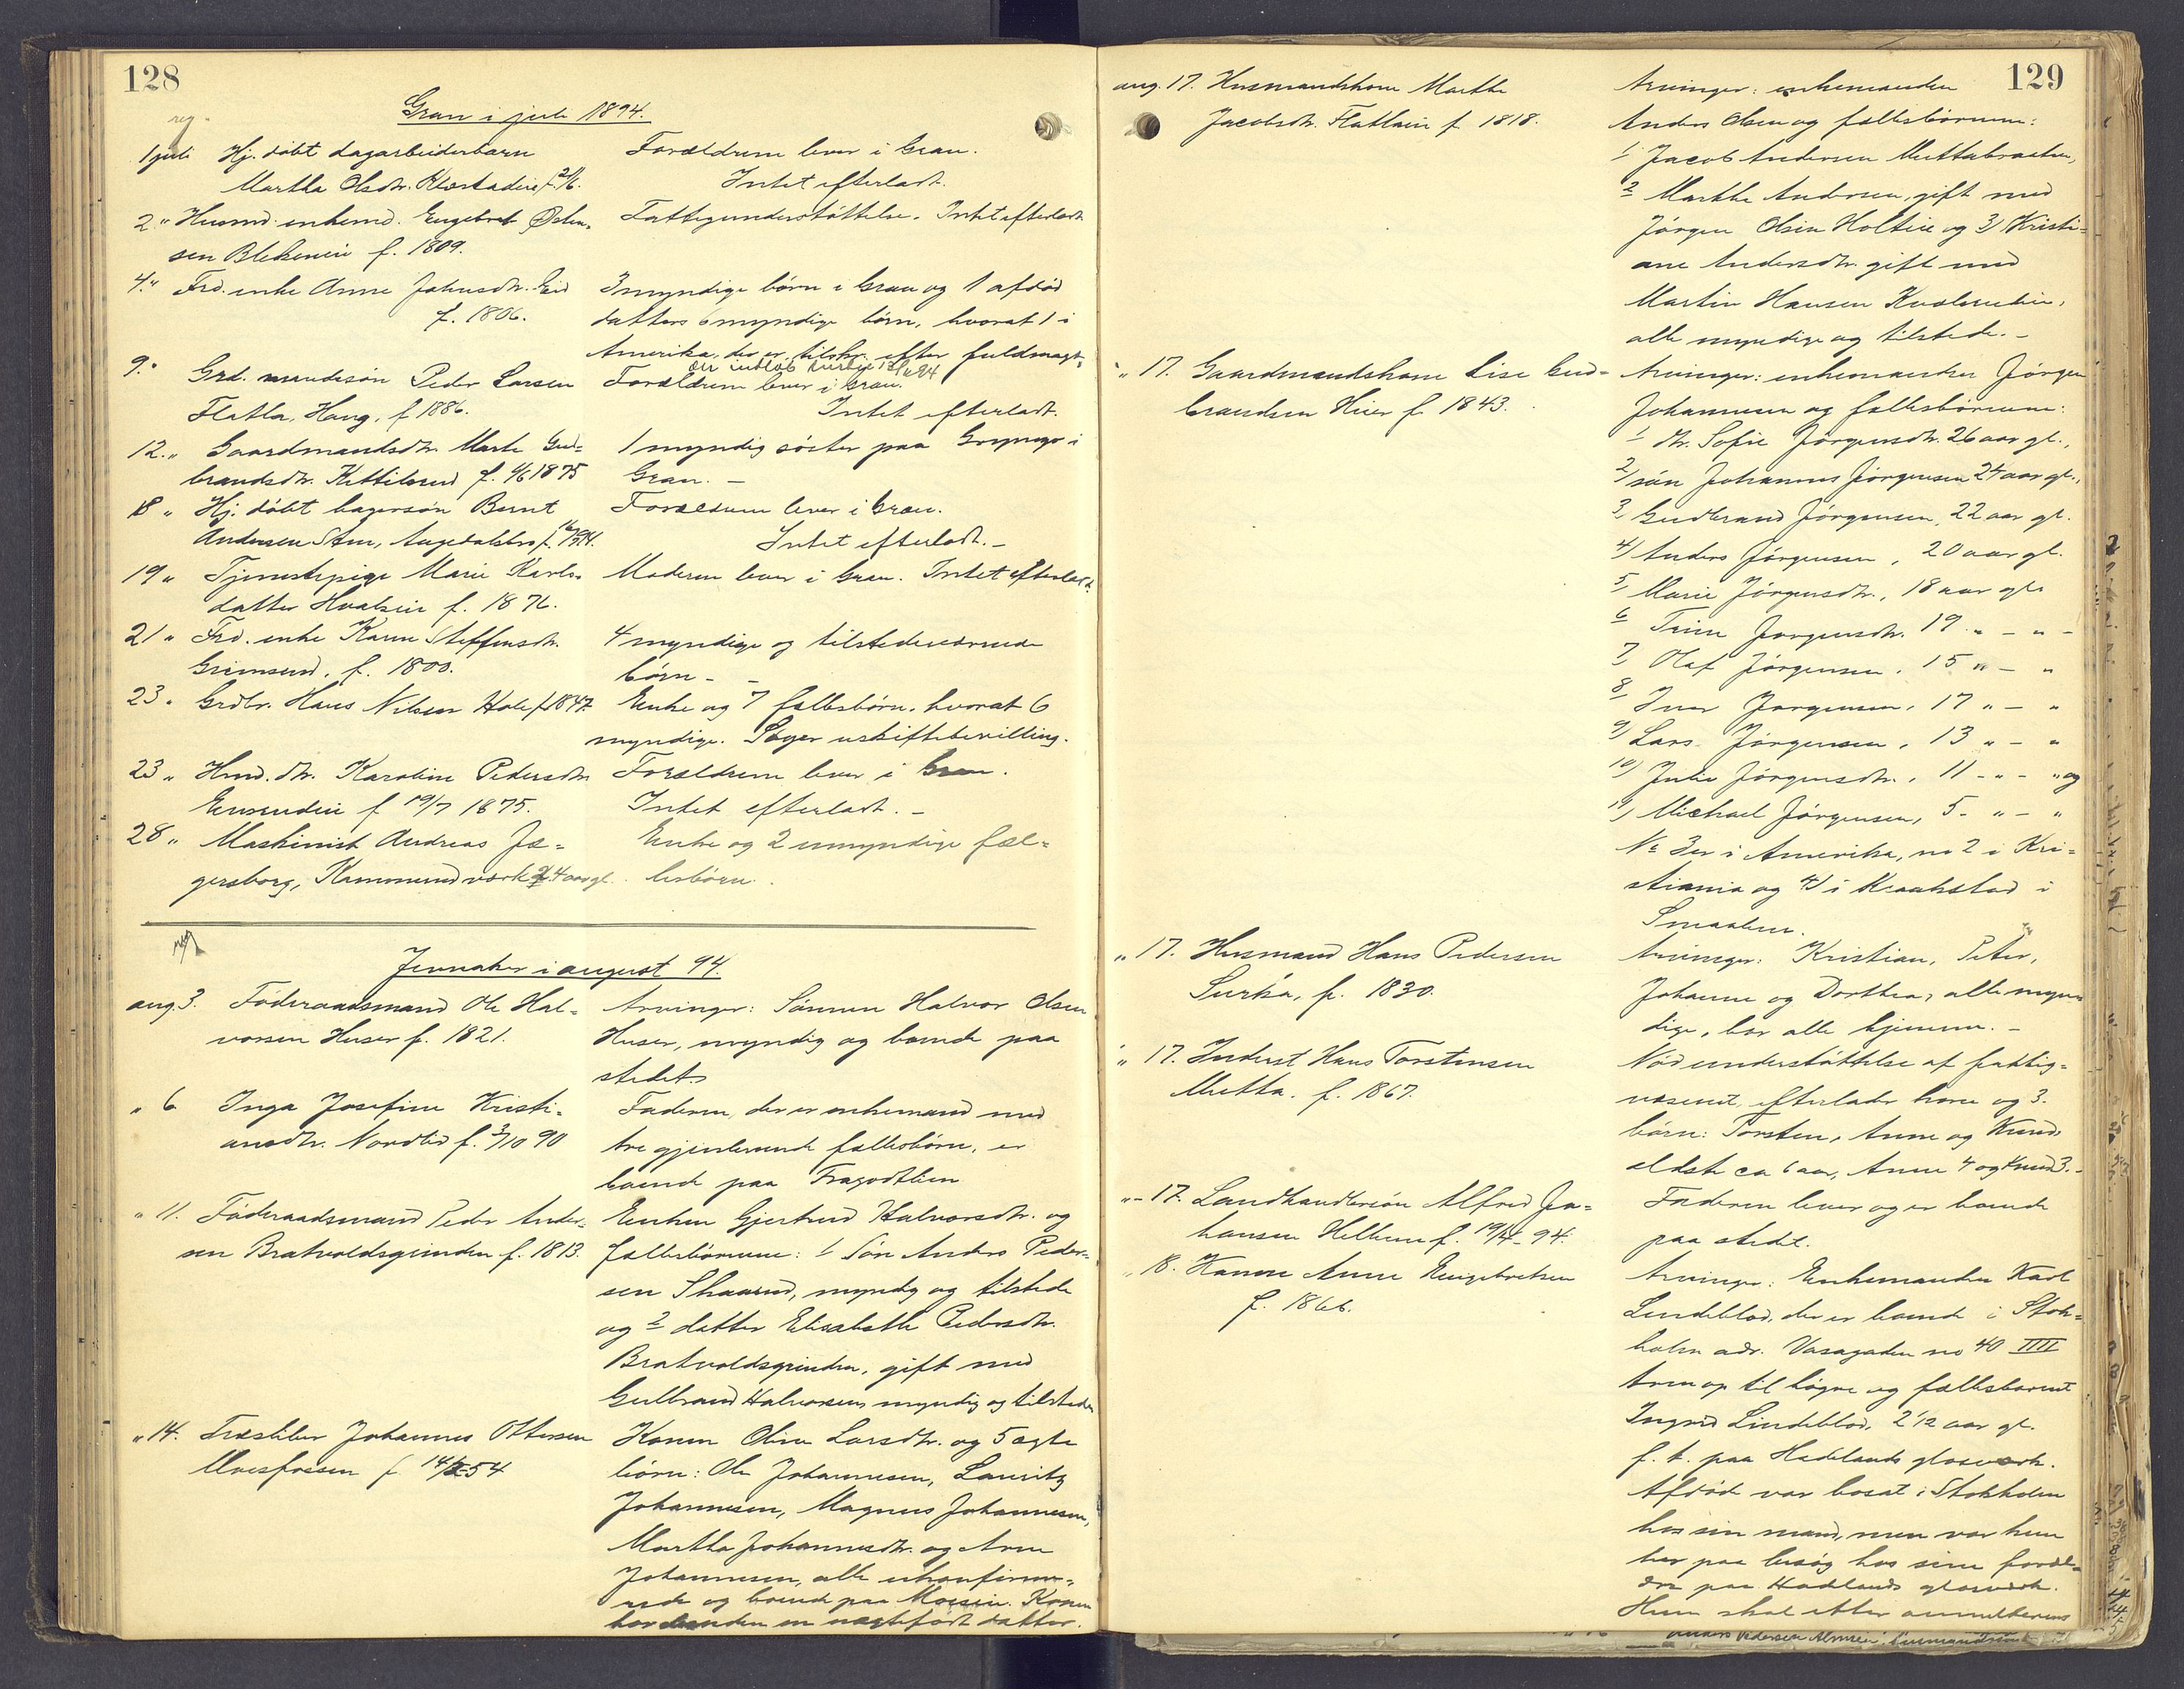 128
Gran i juli 1894.
reg.
1 juli Hj. døbt dagarbeiderbarn
Martha Olsdtr. Klæstadeie f. 2/6.
Forældrene lever i Gran.
Intet efterladt.
2 " Husmd. enkemd. Engebret Østen-
sen Blekeneie f. 1809.
Fattigunderstøttelse. Intet efterladt
4. " Frd. enke Anne Johnsdtr. Eid
f. 1806.
3 myndige børn i Gran og 1 afdød
datters 6 myndige børn, hvoraf 1 i
Amerika, der er tilskr. efter fuldmagt.
9. " Grd. mandssøn Peder Larsen
Flatla, Haug, f. 1886.
Forældrene lever i Gran.
Intet efterladt.
12. " Gaardmandsdtr. Marte Gud-
brandsdtr. Kittilsrud f. 4/6 1875
1 myndig søster paa Grymyr i
Gran. -
18 " Hj. døbt bagersøn Bernt
Andersen
Forældrene lever i Gran.
Intet efterladt. -
19 " Tjenestepige Marie Karls-
datter Hvalseie f. 1876.
Moderen lever i Gran. Intet efterladt.
21 " Frd. enke Karen Steffensdtr.
Grimsrud, f. 1800.
4 myndige og tilstedeværende
børn - -
23 " Grdbr. Hans Nilsen Hole f. 1847.
Enke og 7 fællesbørn, hvoraf 6
myndige. Søger uskiftebevilling.
23 " Hmd. dtr. Karoline Pedersdtr
f 19/7 1875.
Forældrene lever i Gran.
Intet efterladt. -
28 " Maskinist Andreas Jæ-
gersborg, 44 aar gl.
Enke og 2 umyndige fæl-
lesbørn.
Jevnaker i august 94.
aug. 3. Føderaadsmand Ole Hal-
vorsen Huser f. 1821.
Arvinger: Sønnen Halvor Olsen
Huser, myndig og boende paa
stedet.
" 6 Inga Josefine Kristi-
ansdtr. Nordlid f. 3/10 90
Faderen, der er enkemand med
tre gjenlevende fællesbørn, er
boende paa
" 11. Føderaadsmand Peder Ander-
sen Bratvoldsgrinden f. 1813.
Enken Gjertrud Halvorsdtr. og
fællesbørnene: 1 Søn Anders Peder-
sen Skaarud, myndig og tilstede
og 2 datter Elisabeth Pedersdtr.
Bratvoldsgrinden, gift med
Gulbrand Halvorsen, myndig og tilstede
" 14. Træsliber Johannes Ottersen
Moesfossen f. 14/5-54
Konen Oline Larsdtr. og 5 ægte
børn: Ole Johannesen, Lauritz
Johannesen, Magnus Johannesen,
Martha Johannesdtr. og Arne
Johannesen, alle ukonfirme-
rede og boende paa Moeseie. Konen
har desuden en uægtefødt datter.
129
aug. 17. Husmandskone Marthe
Jacobsdtr. Flatlaeie f. 1818.
Arvinger: enkemanden
Anders Olsen og fællesbørnene:
1 Jacob Andersen Muttabraaten,
2 Marthe Andersen, gift med
Jørgen Olsen Holteie og 3) Kristi-
ane Andersdtr. gift med
Martin Hansen
alle myndige og tilstede. -
" 17. Gaardmandskone Lise Gud-
brandsen Hieer f. 1843.
Arvinger: enkemanden Jørgen
Johannesen og fællesbørnene:
1 dtr. Sofie Jørgensdtr. 26 aar gl.,
2) søn Johannes Jørgensen 24 aar gl.,
3) Gudbrand Jørgensen, 22 aar gl.
4) Anders Jørgensen, 20 aar gl.
5) Marie Jørgensdtr., 18 aar gl.
6 Trine Jørgensdtr. 19 " - " -
7 Olaf Jørgensen, 15 " - "
8 Iver Jørgensen, 17 " - "
9) Lars Jørgensen, 13 " - "
10) Julie Jørgensdtr., 11 - " - " og
11) Michael Jørgensen, 5 - " - "
No 3 er i Amerika, no 2 i Kri-
stiania og 4) i Kraakstad i
Smaalene.
" 17. Husmand Hans Pedersen
Surka, f. 1830.
Arvinger: Kristian, Peter,
Johanne og Dorthea, alle myn-
dige, bor alle hjemme. -
" 17. Inderst Hans Torstensen
Mutta. f. 1867.
Nød understøttelse af fattig-
væsenet, efterlader kone og 3
børn: Torsten, Anne og Knud,
ældste ca 6 aar, Anne 4 og Knud 3. -
" - 17. Landhandlersøn Alfred Jo-
hansen Hellum f. 19/4-94.
Faderen lever og er boende
paa stedet.
" 18. Konen Anne Engebretsen
f. 1866.
Arvinger: Enkemanden Karl
Lindeblad, der er boende i Stok-
holm adr. Vasagaden no 40 IIII
trin op til høgre og fællesbarnet
Ingrid Lindeblad, 2 1/2 aar gl.
f. t. paa Hadelands glasværk.
Afdøde var bosat i Stokholm
hos sin mand, men var kun
her paa besøg hos sine foræl-
dre paa Hadelands glasværk.
Hun skal efter anmelderens